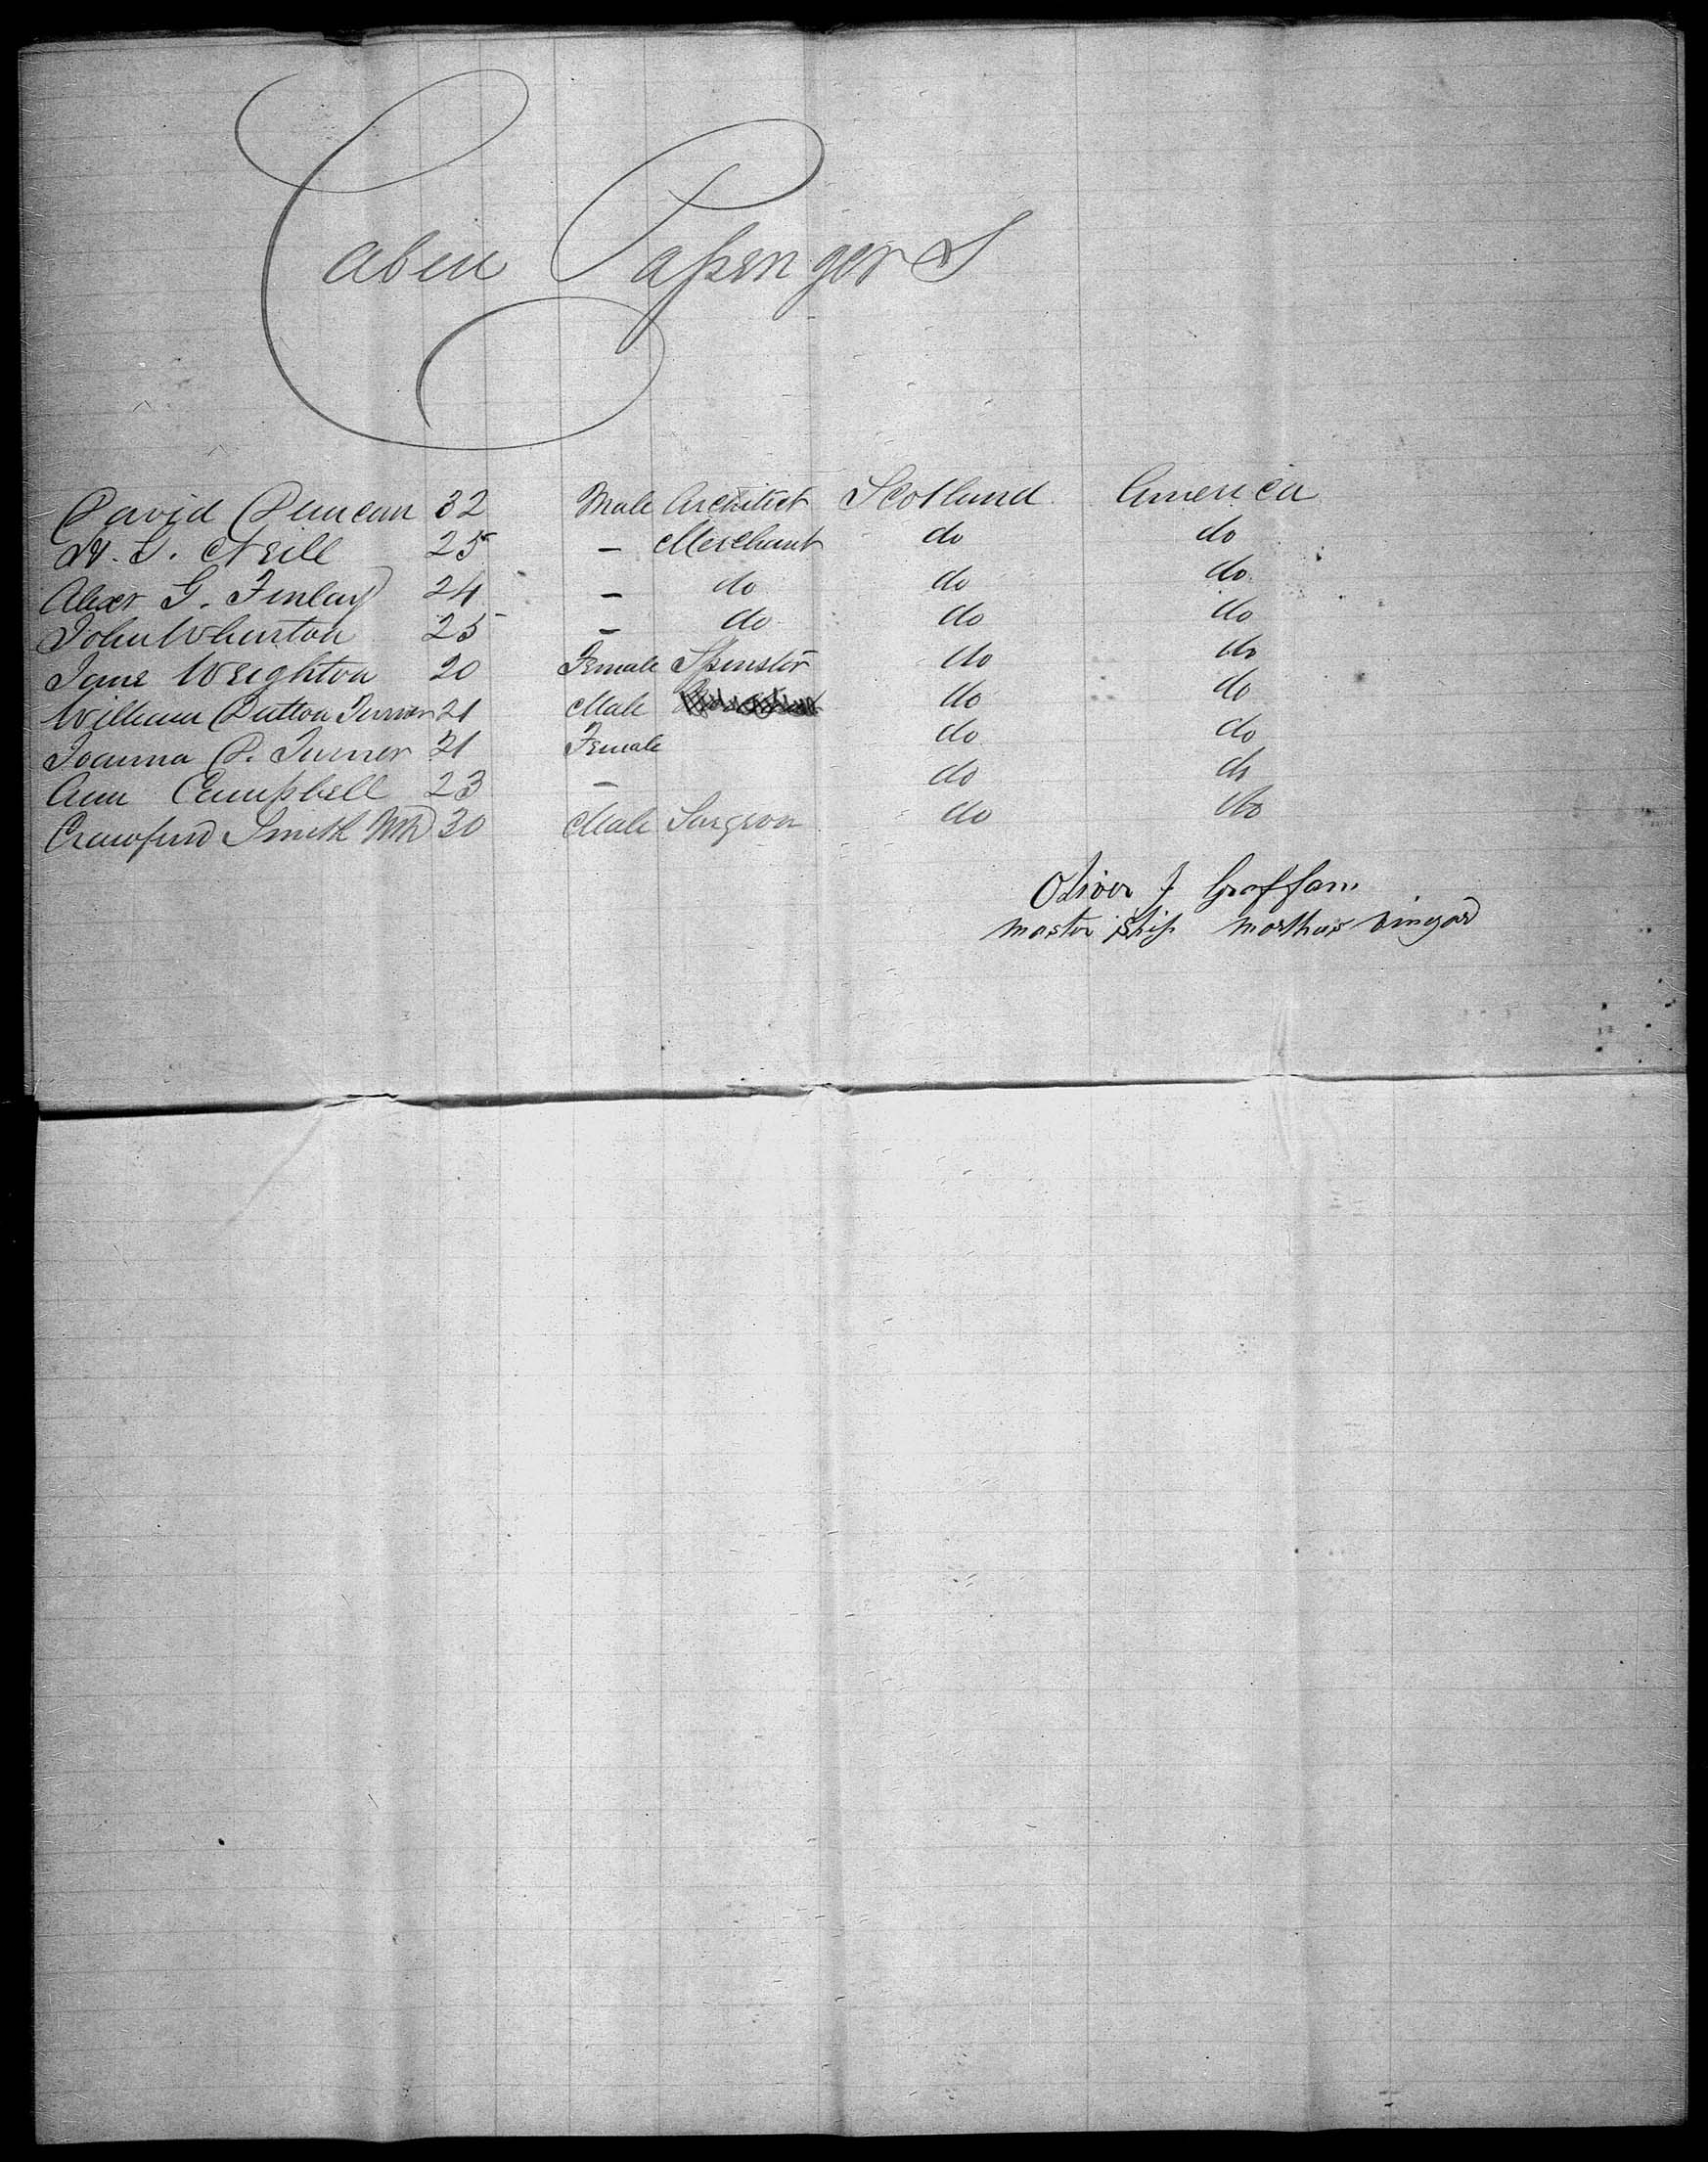 Cabin Passengers
David Duncan 32 Male Architect Scotland America
W. S. Neill 25 – Merchant do do
Alexr G. Finlay 24 – do do do
John Whurton 25 – do do do
Jane Weighton 20 Female Spinster do do
William Dutton Turner 21 Male do do
Joanna D. Turner 21 Female do do
Ann Campbell 23 – do do
Crawfurd Smith MD 30 Male Surgeon do do
Oliver J Graffam
Master Ship Marthas vinyard